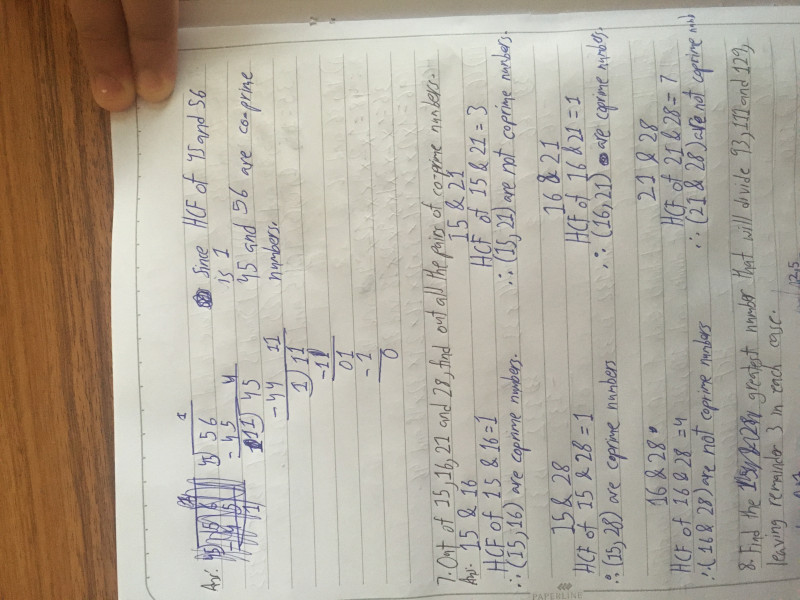 Ans.
45) 56 1
- 45
11) 45 4
- 44
1) 11 11
- 11
01
- 1
0
Since HCF of 45 and 56
is 1
45 and 56 are co-prime
numbers.
7. Out of 15, 16, 21 and 28, find out all the pairs of co-prime numbers.
Ans. 15 & 16
HCF of 15 & 16 = 1
∴ (15, 16) are coprime numbers.
15 & 21
HCF of 15 & 21 = 3
∴ (15, 21) are not coprime numbers.
15 & 28
HCF of 15 & 28 = 1
∴ (15, 28) are coprime numbers
16 & 21
HCF of 16 & 21 = 1
∴ (16, 21) are coprime numbers.
16 & 28
HCF of 16 & 28 = 4
∴ (16 & 28) are not coprime numbers
21 & 28
HCF of 21 & 28 = 7
∴ (21 & 28) are not coprime
8. Find the greatest number that will divide 93, 111 and 129,
leaving remainder 3 in each case.
PAPERLINE